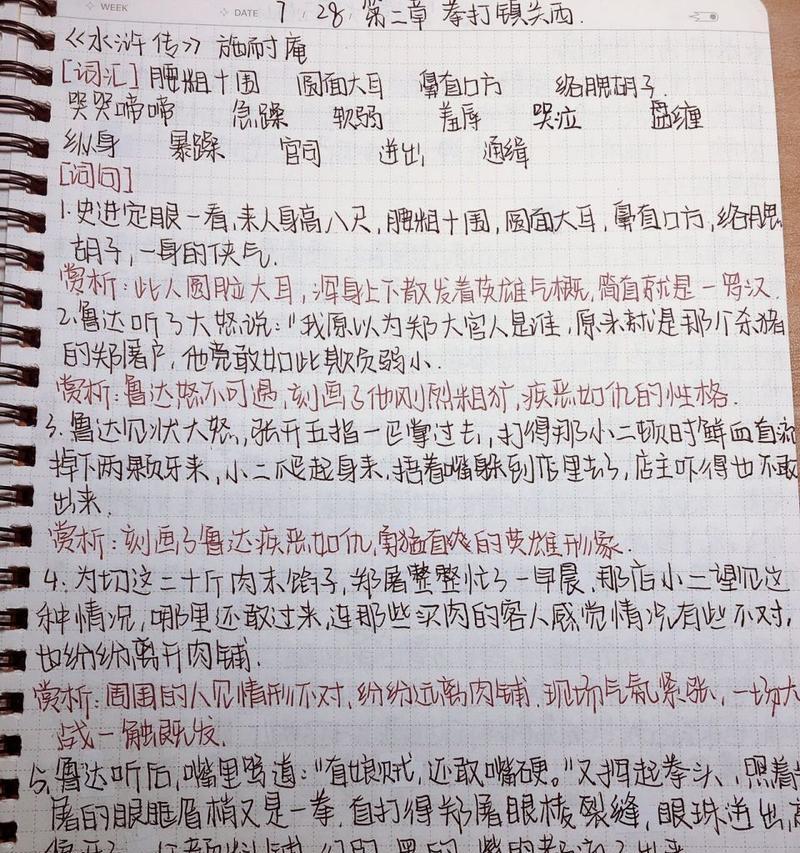 WEEK
DATE 7/28 第二章 拳打镇关西.
《水浒传》 施耐庵
[词汇] 腰粗十围 圆面大耳 鼻直口方 络腮胡子.
哭哭啼啼 急躁 软弱 羞辱 哭泣 盘缠
纵身 暴躁 官司 迸出 通缉
[词句]
1.史进定眼一看,来人身高八尺,腰粗十围,圆面大耳,鼻直口方,络腮
胡子,一身的侠气.
赏析:此人圆脸大耳,浑身上下散发着英雄气概,简直就是一罗汉.
2.鲁达听了大怒说:“我原以为郑大官人是谁,原来就是那个杀猪
的郑屠户,他竟敢如此欺负弱小.
赏析:鲁达怒不可遏,刻画了他刚烈粗犷,疾恶如仇的性格.
3.鲁达见状大怒,张开五指一巴掌过去,打得那小二顿时鲜血直流
掉下两颗牙来,小二爬起身来,捂着嘴躲到店里去了,店主吓得也不敢
出来.
赏析:刻画了鲁达疾恶如仇,勇猛直爽的英雄形象.
4.为切这二十斤肉末馅子,郑屠整整忙了一早晨.那店小二望见这
种情况,哪里还敢过来,连那些买肉的客人感觉情况有些不对,
也纷纷离开肉铺.
赏析:周围的人见情形不对,纷纷远离肉铺.现场气氛紧张,一场大
战一触既发.
5.鲁达听后,嘴里骂道:“直娘贼,还敢嘴硬.”又挥起拳头,照着
屠的眼眶眉梢又是一拳.直打得郑屠眼棱裂缝,眼珠迸出,